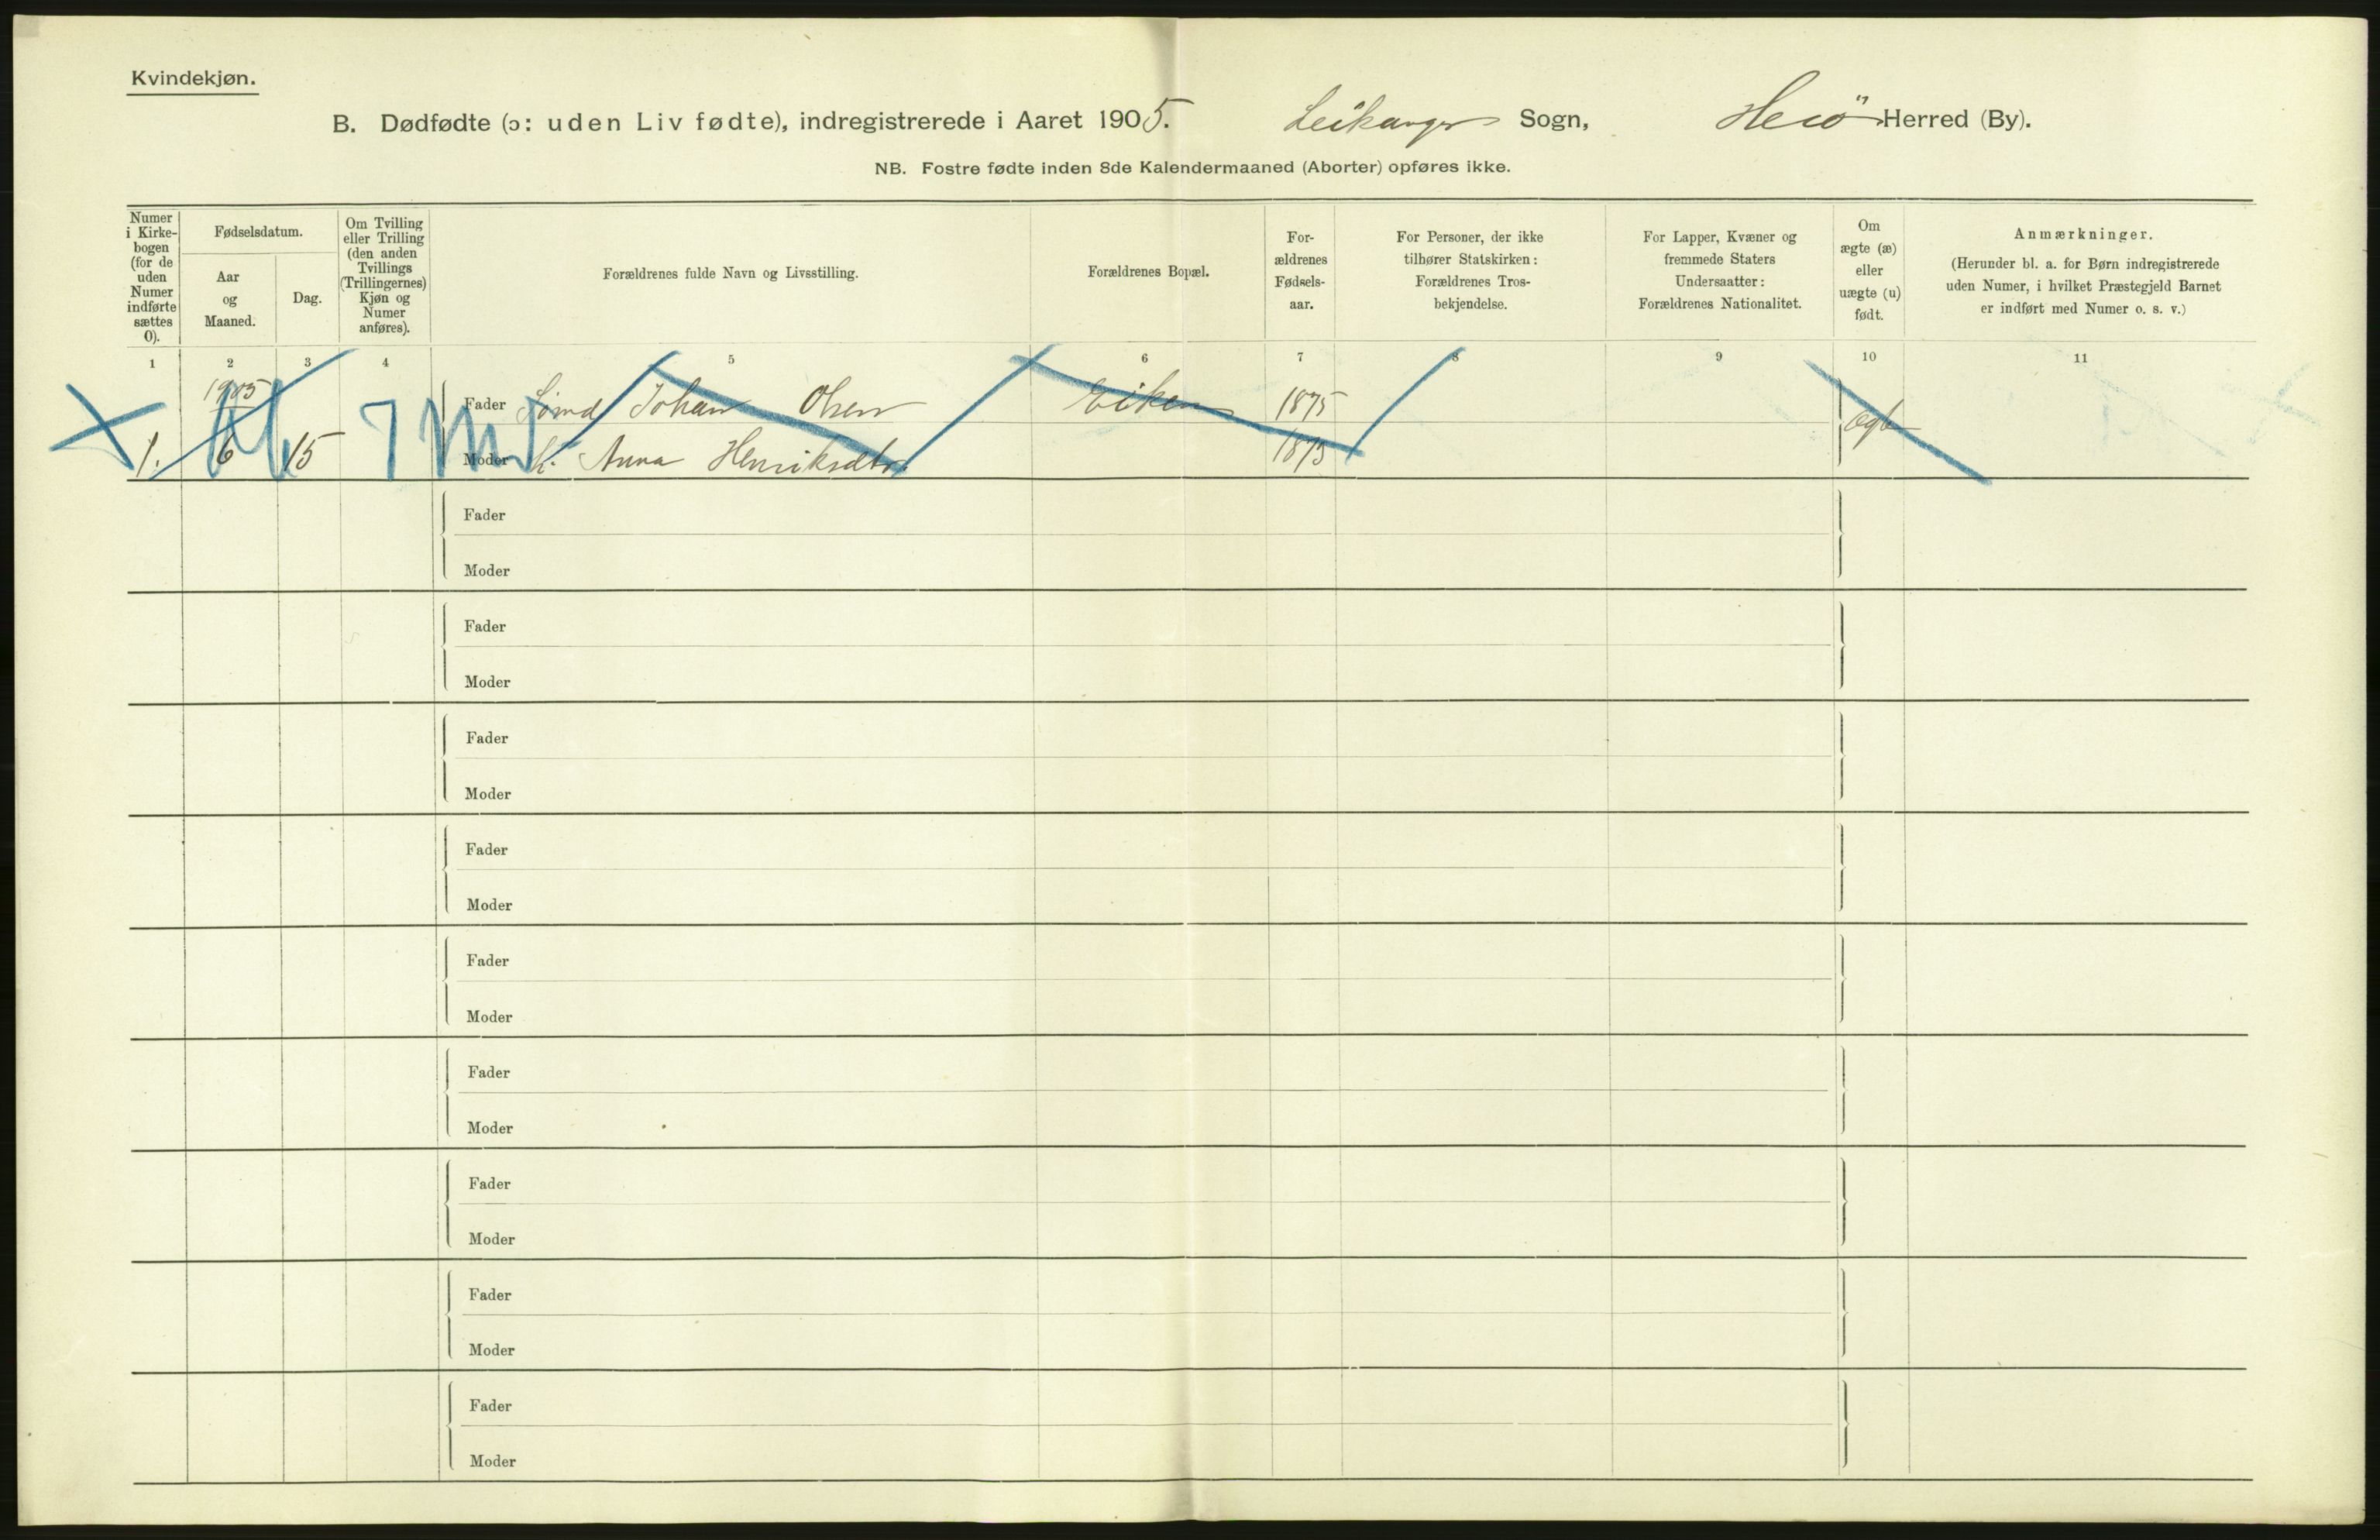 Kvindekjøn.
B. Dødfødte (ɔ: uden Liv fødte), indregistrerede i Aaret 1905. Leikanger Sogn, Herö Herred (By).
NB. Fostre fødte inden 8de Kalendermaaned (Aborter) opføres ikke.
Numer i Kirke-bogen (for de uden Numer indførte sættes 0).
Fødselsdatum.
Aar og Maaned.
Dag.
Om Tvilling eller Trilling (den anden Tvillings (Trillingernes) Kjøn og Numer anføres).
Forældrenes fulde Navn og Livsstilling.
Forældrenes Bopæl.
For-ældrenes Fødsels-aar.
For Personer, der ikke tilhører Statskirken: Forældrenes Tros-bekjendelse.
For Lapper, Kvæner og fremmede Staters Undersaatter: Forældrenes Nationalitet.
Om ægte (æ) eller uægte (u) født.
Anmærkninger.
(Herunder bl. a. for Børn indregistrerede uden Numer, i hvilket Præstegjeld Barnet er indført med Numer o. s. v.)
1 2 3 4 5 6 7 8 9 10 11
1905
Fader Johan Olsen Eiken 1875
1. 6 15 Moder K. Anna Henriksdtr. 1875 Ægte
Fader
Moder
Fader
Moder
Fader
Moder
Fader
Moder
Fader
Moder
Fader
Moder
Fader
Moder
Fader
Moder
Fader
Moder